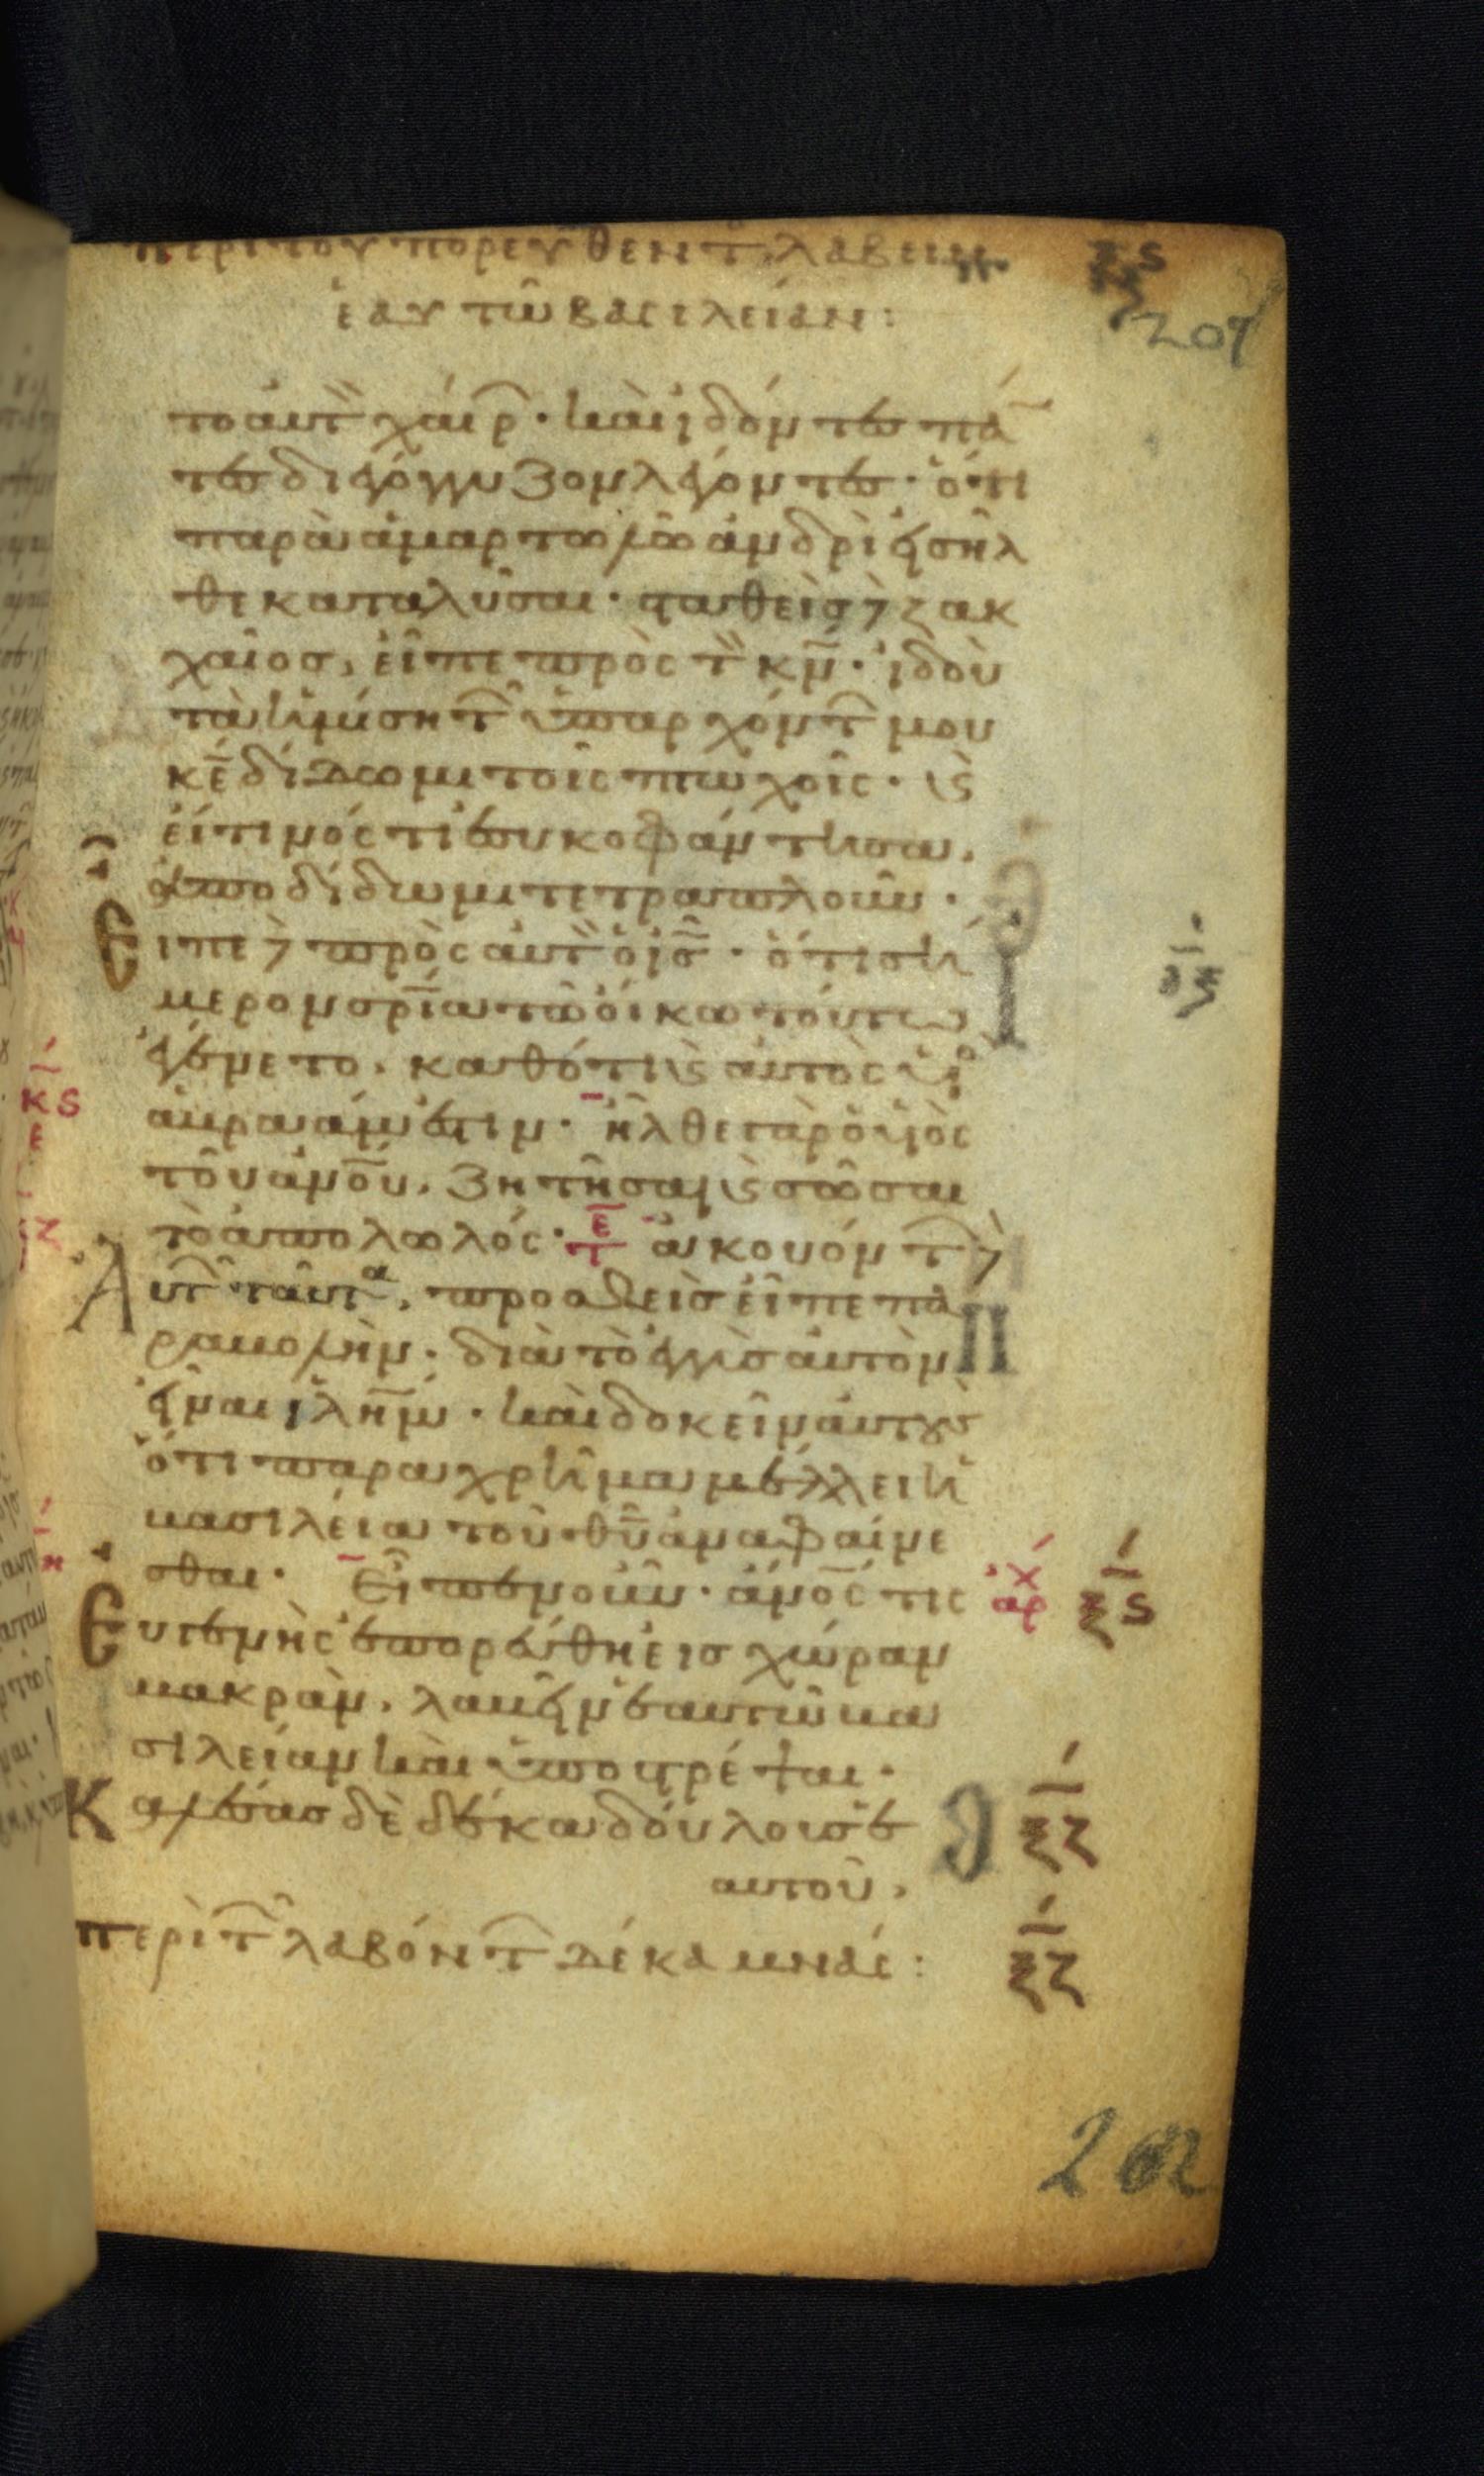 περι του πορευθεντ λαβειν ξς
εαυτῶ βασιλείαν: 207
το αυτ̀ χαίρ· καὶ ἰδόντες πά
τες διεγόγγυζον λέγοντες· ὅτι
παρὰ ἁμαρτωλῶ ἀνδρὶ εἰσῆλ
θε καταλῦσαι· σταθεὶς δὲ ζακ
χαῖος, εἶπε πρὸς τ̀ κν̄· ἰδοὺ
τὰ ἡμίση τ̂ ὑπαρχόντ̂ μου
κε̄ δίδωμι τοῖς πτωχοῖς· καὶ
εἴ τινός τι ἐσυκοφάντησα,
ἀποδίδωμι τετραπλοῦν·
Εἶπε δὲ πρὸς αὐτ̀ ὁ ἰς̄· ὅτι σή
μερον σρ̄ία τῶ οἴκω τούτω
ἐγένετο, καθότι καὶ αὐτὸς υἱὸ
ἀβραάμ ἐστιν· ἦλθε γὰρ ὁ υἱὸς
τοῦ ἀνοῦ, ζητῆσαι καὶ σῶσαι
τὸ ἀπολωλός· ἀκουόντ̂ δὲ
Αὐτ̂ ταῦτα, προσθεὶς εἶπε πα
ραβολὴν· διὰ τὸ ἐγγὺς αὐτὸν
εἶναι ἰλη̄μ· καὶ δοκεῖν αὐτοὺς
ὅτι παραχρῆμα μέλλει ἡ
βασιλεία τοῦ θῦ ἀναφαίνε
σθαι· Εἶπεν οὖν· ἀνος̄ τις ἀρχ ξς
Εὐγενὴς ἐπορεύθη εἰς χώραν
μακρὰν, λαβεῖν ἑαυτῶ βα
σιλείαν καὶ ὑποστρέψαι·
Καλέσας δὲ δέκα δούλους ἑ ξζ
αυτοῦ,
περὶ τ̂ λαβόντ̂ δέκα μνάς: ξζ
202